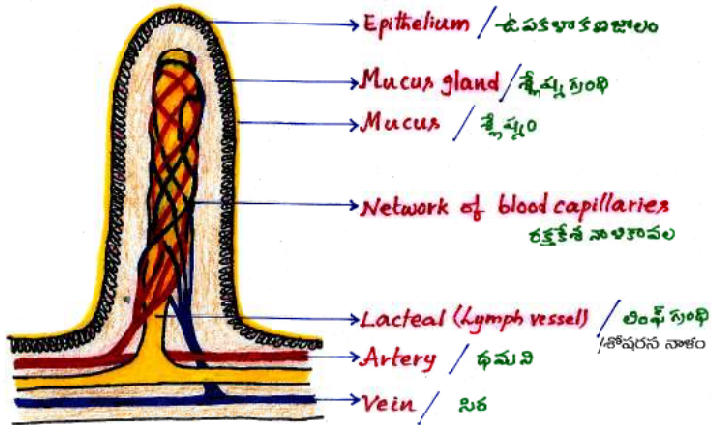 Epithelium / ఉపకళాకణజాలం
Mucus gland / శ్లేష్మ గ్రంథి
Mucus / శ్లేష్మం
Network of blood capillaries
రక్తకేశనాళికావల
Lacteal (Lymph vessel) / లింఫ్ గ్రంథి
/శోషరస నాళం
Artery / ధమని
Vein / సిర